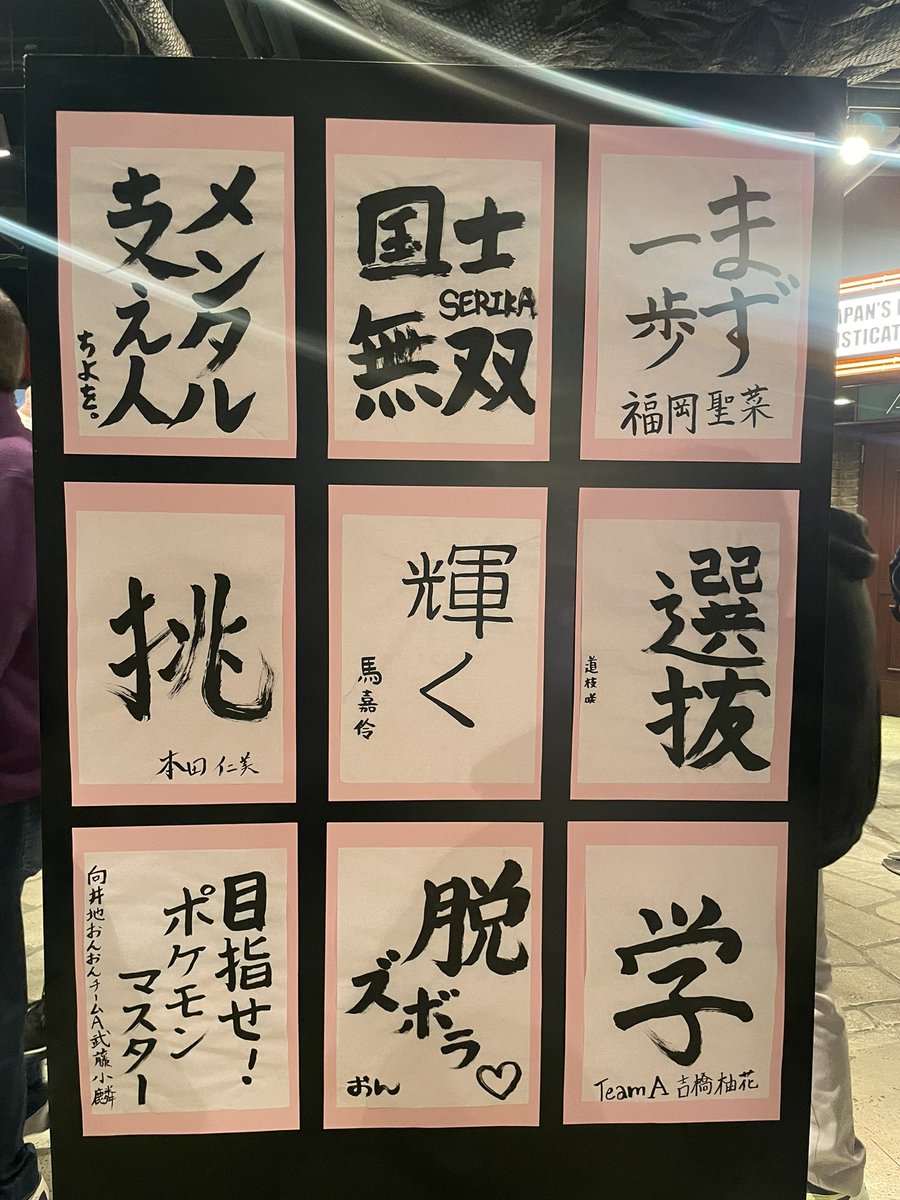 メンタル
支え人
ちよを。
国士
SERIKA
無双
まず
一歩
福岡聖菜
挑
本田仁美
輝く
馬嘉伶
選抜
道枝咲
目指せ!
ポケモン
マスター
向井地おんおんチームA武藤小麟
脱
ズボラ♡
おん
学
Team A 吉橋柚花
APAN'S
ISTICAT